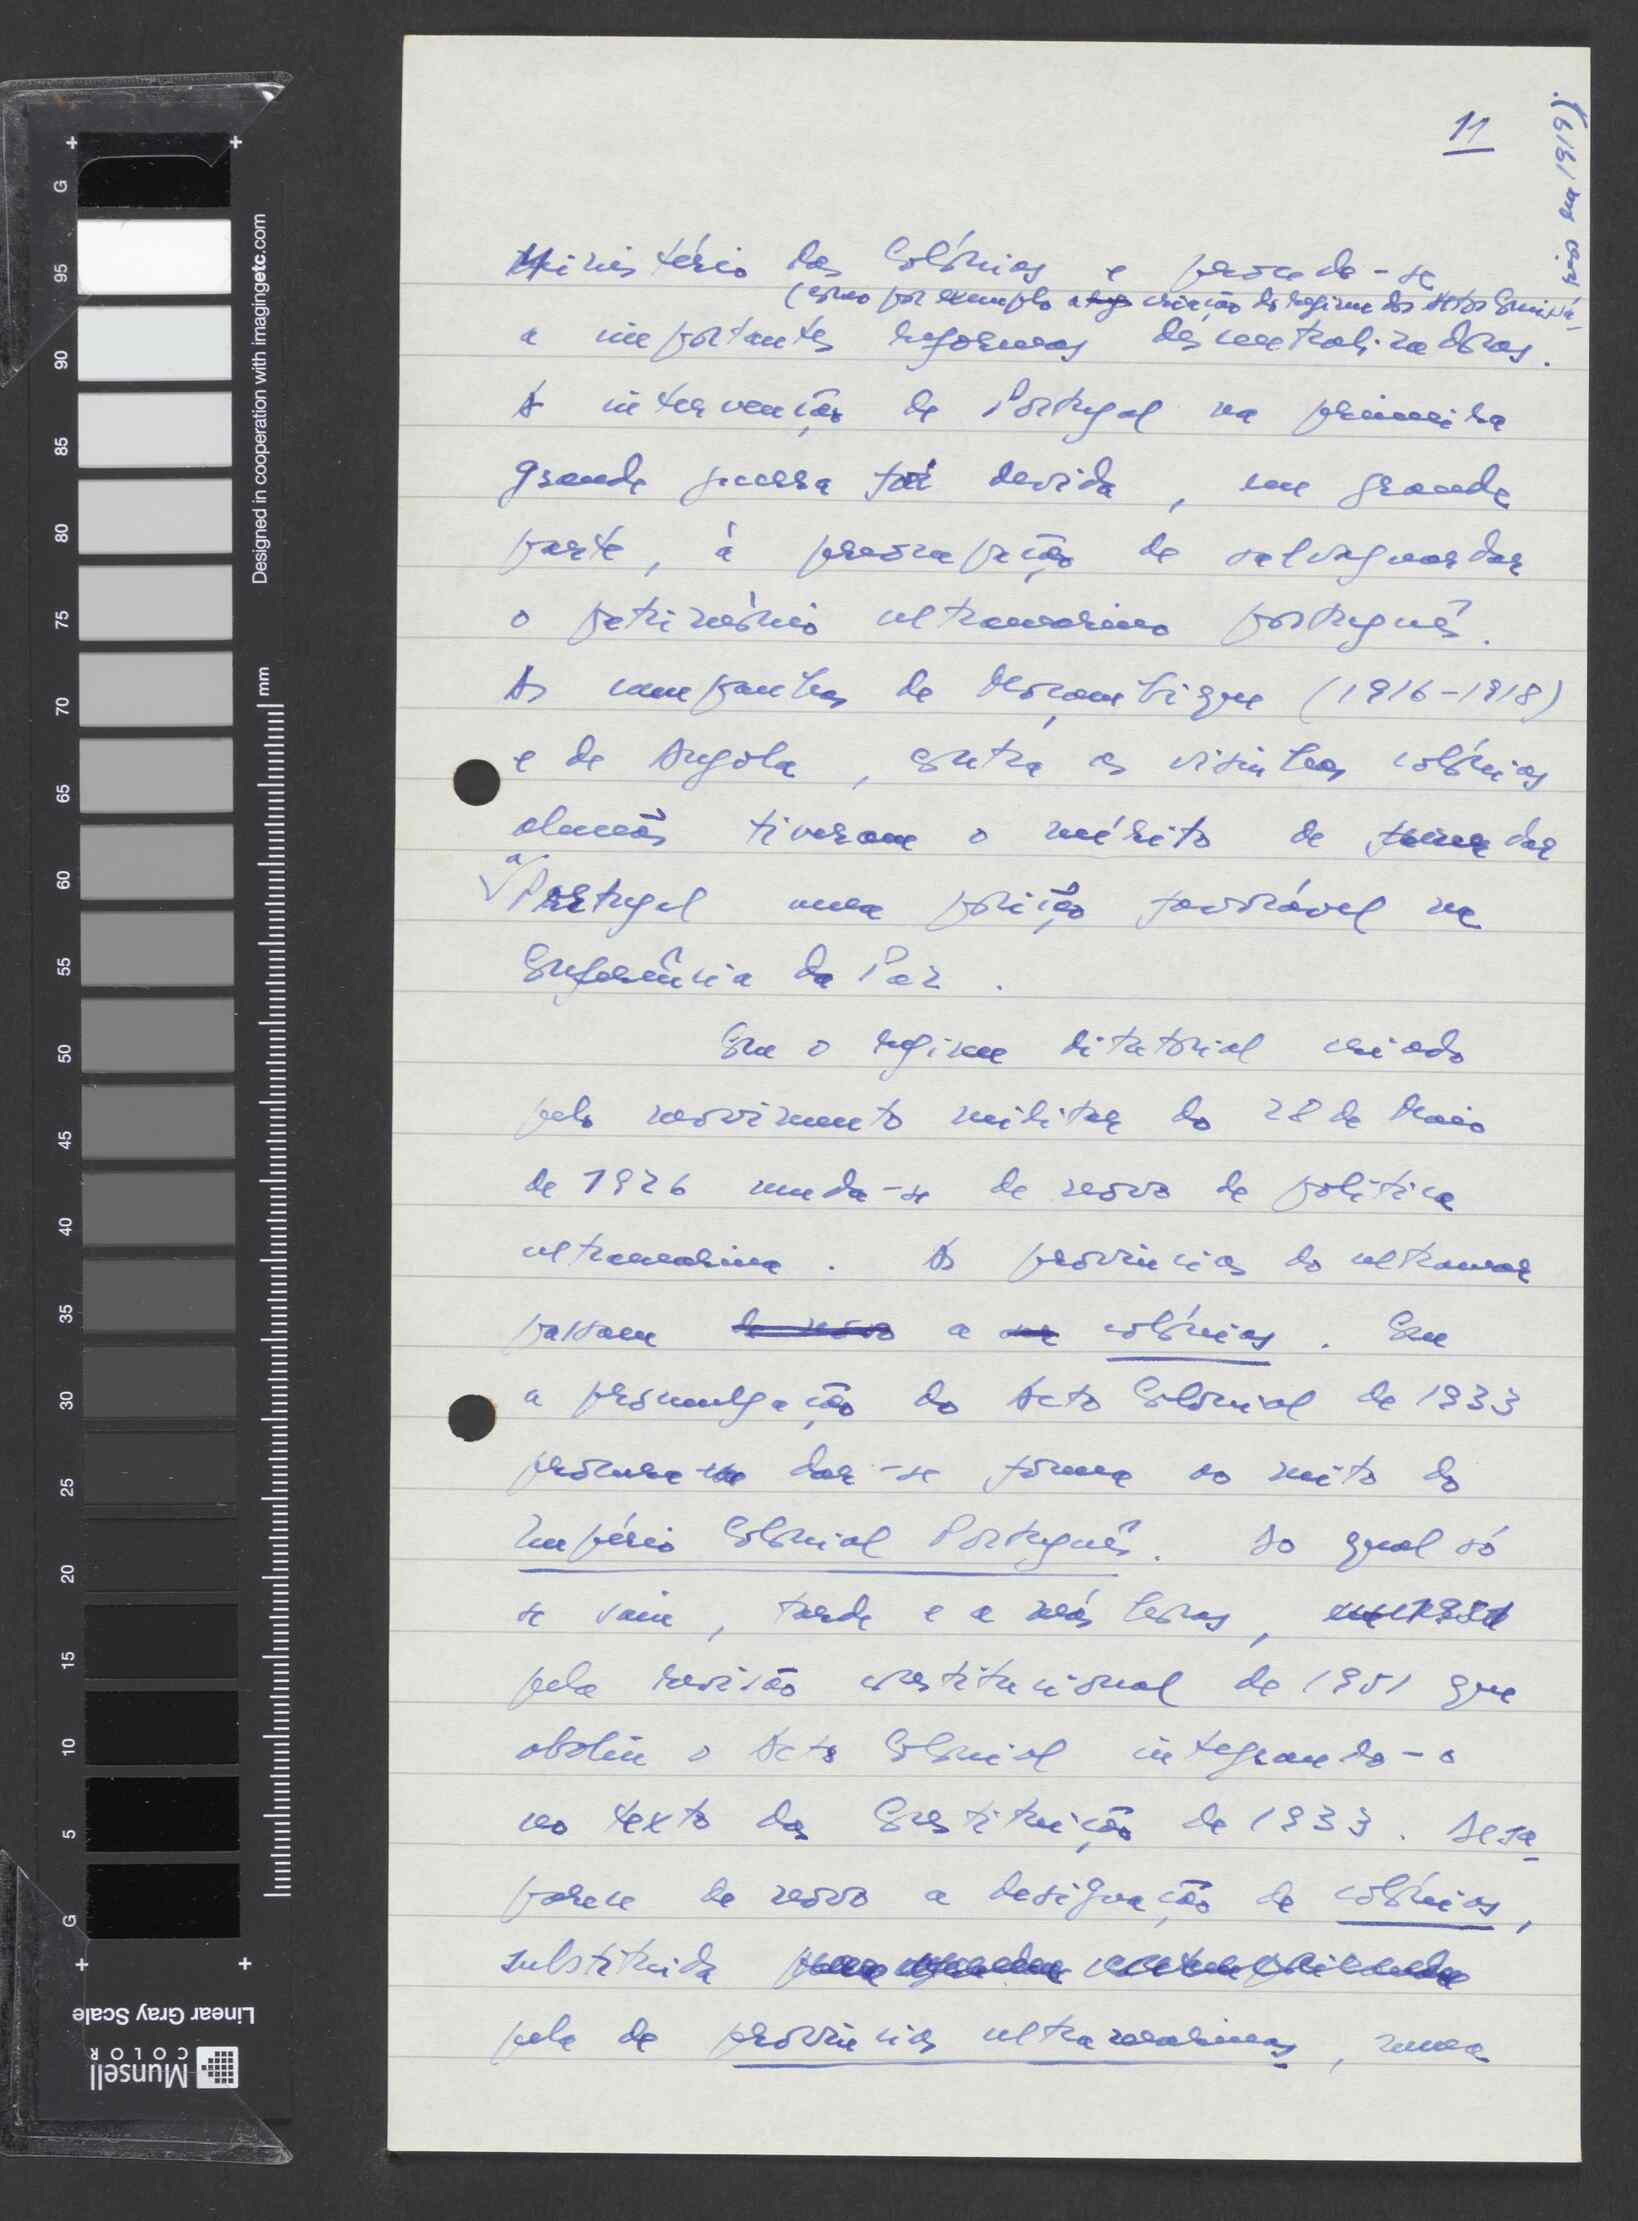 11
Ministério das Colónias e procede-se
(como por exemplo a criação do regime dos Altos Comissá-
rios em 1919).
a importantes reformas descentralizadoras.
A intervenção de Portugal na primeira
grande guerra foi devida, em grande
parte, à preocupação de salvaguardar
o património ultramarino português.
As campanhas de Moçambique (1916-1918)
e de Angola, contra as visinhas colónias
alemãs tiveram o mérito de dar
a Portugal uma posição favorável na
Conferência da Paz.
Com o regime ditatorial criado
pelo movimento militar do 28 de Maio
de 1926 muda-se de novo de política
ultramarina. As províncias do ultramar
passam de novo a ser colónias. Com
a promulgação do Acto Colonial de 1933
procura dar-se forma ao mito do
Império Colonial Português. Do qual só
se saiu, tarde e a más horas, em 1951
pela revisão constitucional de 1951 que
aboliu o Acto Colonial integrando-o
no texto da Constituição de 1933. Desa-
parece de novo a designação de colónias,
substituida
pela de províncias ultramarinas, numa
G 95 90 85 80 75 70 65 60 55 50 45 40 35 30 25 20 15 10 5 G
mm
Designed in cooperation with imagingetc.com
Linear Gray Scale
Munsell
COLOR